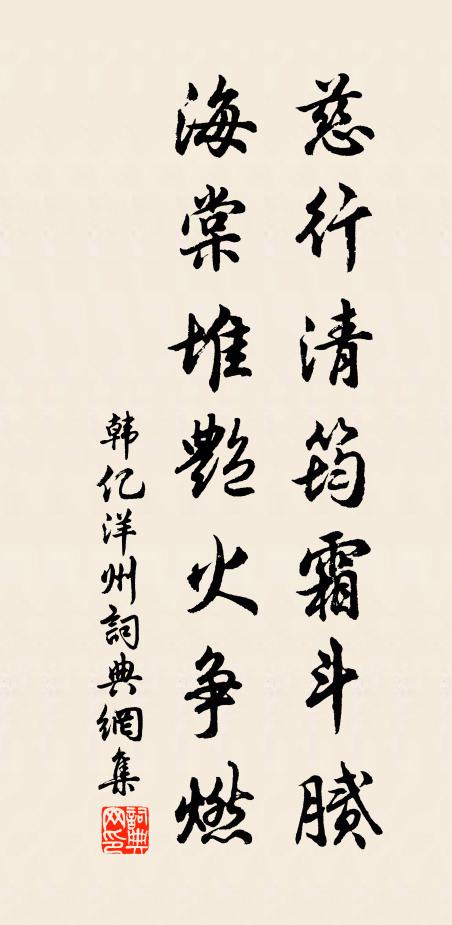 慈行清筠霜斗膩
海棠堆艷火争燃
韩亿洋州詞典網集
詞典网印